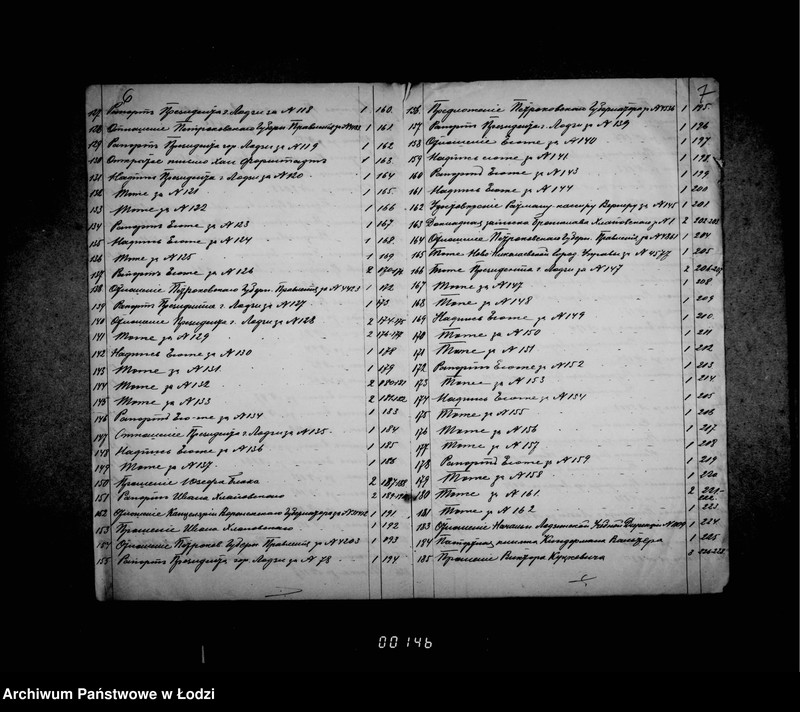 6
127 Рапортъ Президента г. Лодзи за N 118 1 160
128 Отношение Петроковского Губерн. Правленія за N 1 161
129 Рапортъ Президента гор. Лодзи за N 119 1 162
130 письмо 1 163
131 Надпись Президента г. Лодзи за N 120 1 164
132 Тоже за N 121 1 165
133 Тоже за N 122 1 166
134 Рапортъ Его-же за N 123 1 167
135 Надпись Его-же за N 124 1 168
136 Тоже за N 125 1 169
137 Рапортъ Его-же за N 126 2 170-171
138 Отношение Петроковского Губерн. Правленія за N 4423 1 172
139 Рапортъ Президента г. Лодзи за N 127 1 173
140 Отношение Президента г. Лодзи за N 128 2 174-175
141 Тоже за N 129 2 176-177
142 Надпись Его-же за N 130 1 178
143 Тоже за N 131 1 179
144 Тоже за N 132 2 180-181
145 Тоже за N 133 2
146 Рапортъ Его-же за N 134 1 183
147 Отношение Президента г. Лодзи за N 135 1 184
148 Надпись Его-же за N 136 1 185
149 Тоже за N 137 1 186
150 Прошеніе Іозефа 2 187-188
151 Рапортъ Ивана 2
152 Отношение Канцеляріи Губернатора за N 1 191
153 Прошеніе Ивана 1 192
154 Отношение Петроков. Губерн. Правленія за N 4203 1 193
155 Рапортъ Президента гор. Лодзи за N 78 1 194
7
156 Предложеніе Петроковского Губернатора N 1 195
157 Рапортъ Президента г. Лодзи за N 139 1 196
158 Отношение Его-же за N 140 1 197
159 Надпись его-же за N 141 1 198
160 Рапортъ Его-же за N 143 1 199
161 Надпись Его-же за N 144 1 200
162 кассиру за N 145 1 201
163 Докладная записка Бронислава N 1 2 202-203
164 Отношение Петроковского Губерн. Правленія за N 1 204
165 Тоже Ново Николаевской Город. Управы за N 4577 1 205
166 Тоже Президента г. Лодзи за N 147 2 206-207
167 Тоже за N 147 1 208
168 Тоже за N 148 1 209
169 Надпись Его-же за N 149 1 210
170 Тоже за N 150 1 211
171 Тоже за N 151 1 212
172 Рапортъ Его-же за N 152 1 213
173 Тоже за N 153 1 214
174 Надпись Его-же за N 154 1 205
175 Тоже за N 155 1 206
176 Тоже за N 156 1 217
177 Тоже за N 157 1 208
178 Рапортъ Его-же за N 159 1 219
179 Тоже за N 158 1 220
180 Тоже за N 161 2 221-222
181 Тоже за N 162 1 223
183 Отношение Лодзинской 1 224
184 1 225
185 Прошеніе Виктора 2
00146
Archiwum Państwowe w Łodzi